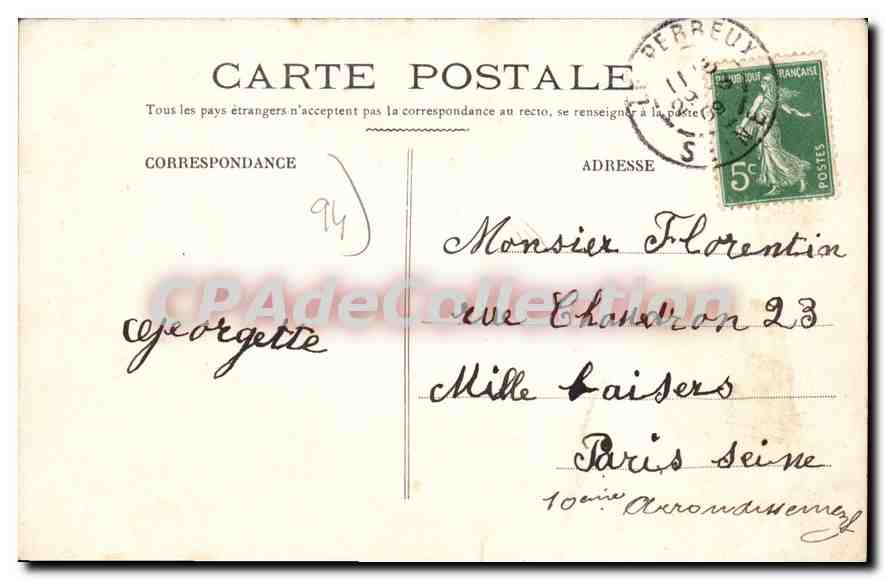 CARTE POSTALE
Tous les pays étrangers n'acceptent pas la correspondance au recto, se renseigner à la poste
CORRESPONDANCE
ADRESSE
LE PERREUX
SEINE
REPUBLIQUE FRANÇAISE
5c
POSTES
94
Monsier Florentin
CPAdeCollection.com
rue Chaudron 23
Georgette
Mille baisers
Paris seine
10eme Arrondissement